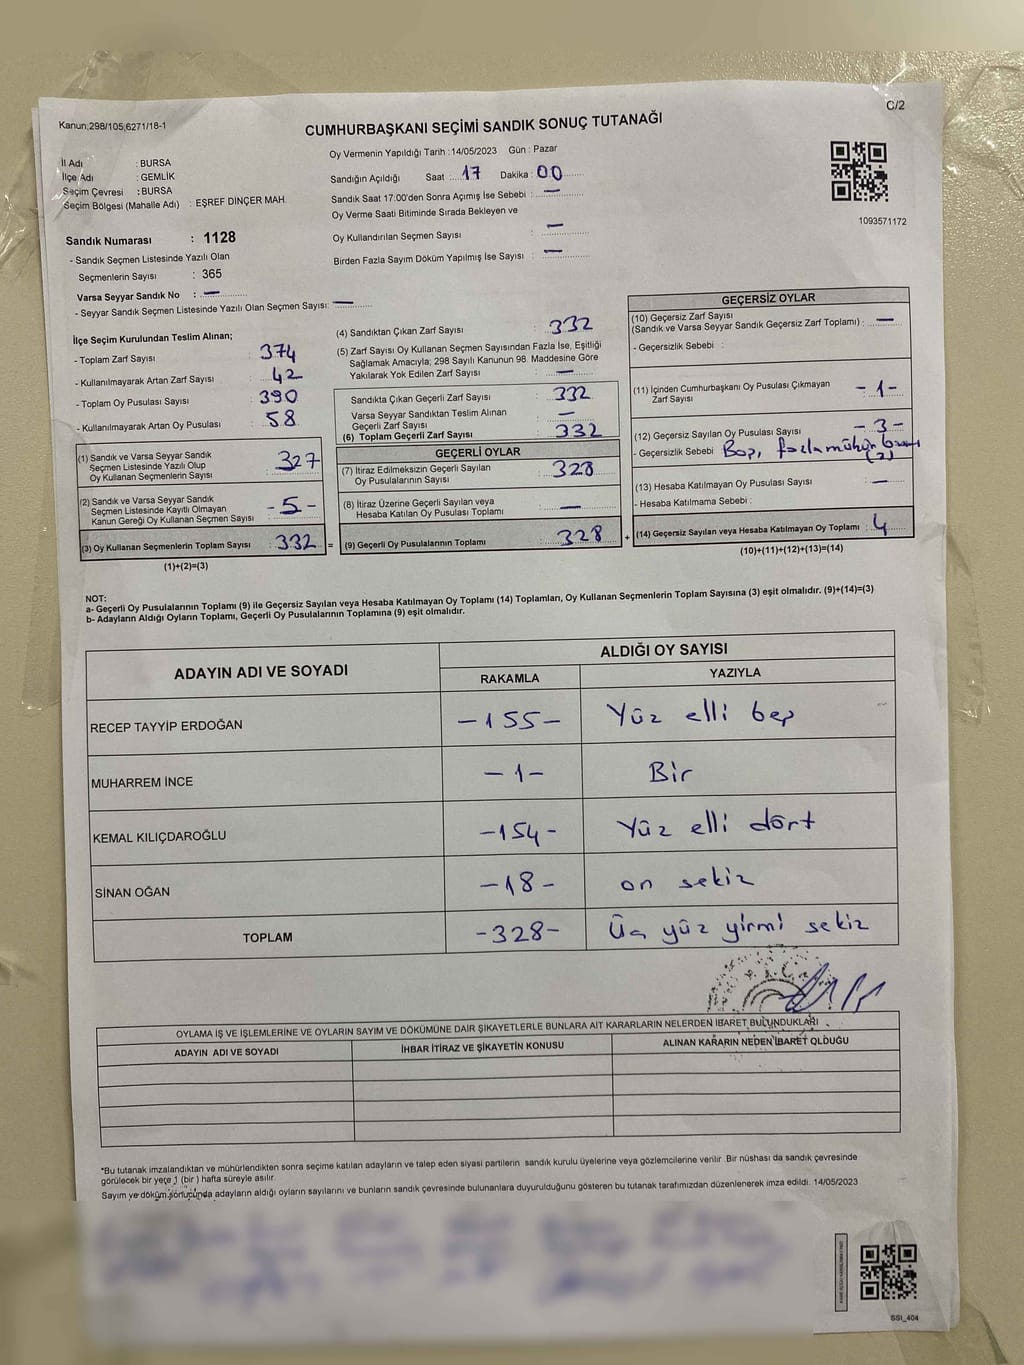 Kanun;298/105,6271/18-1
C/2
CUMHURBAŞKANI SEÇİMİ SANDIK SONUÇ TUTANAĞI
İl Adı : BURSA
İlçe Adı : GEMLİK
Seçim Çevresi : BURSA
Seçim Bölgesi (Mahalle Adı) : EŞREF DİNÇER MAH.
Oy Vermenin Yapıldığı Tarih : 14/05/2023 Gün : Pazar
Sandığın Açıldığı Saat 17 Dakika : 00
Sandık Saat 17:00'den Sonra Açımış İse Sebebi : —
Oy Verme Saati Bitiminde Sırada Bekleyen ve
Oy Kullandırılan Seçmen Sayısı : —
Birden Fazla Sayım Döküm Yapılmış İse Sayısı : —
1093571172
Sandık Numarası : 1128
- Sandık Seçmen Listesinde Yazılı Olan
Seçmenlerin Sayısı : 365
Varsa Seyyar Sandık No : —
- Seyyar Sandık Seçmen Listesinde Yazılı Olan Seçmen Sayısı: —
İlçe Seçim Kurulundan Teslim Alınan;
- Toplam Zarf Sayısı : 374
- Kullanılmayarak Artan Zarf Sayısı : 42
- Toplam Oy Pusulası Sayısı : 390
- Kullanılmayarak Artan Oy Pusulası : 58
(1) Sandık ve Varsa Seyyar Sandık
Seçmen Listesinde Yazılı Olup
Oy Kullanan Seçmenlerin Sayısı : 327
(2) Sandık ve Varsa Seyyar Sandık
Seçmen Listesinde Kayıtlı Olmayan
Kanun Gereği Oy Kullanan Seçmen Sayısı : -5-
(3) Oy Kullanan Seçmenlerin Toplam Sayısı : 332 =
(1)+(2)=(3)
(4) Sandıktan Çıkan Zarf Sayısı : 332
(5) Zarf Sayısı Oy Kullanan Seçmen Sayısından Fazla İse, Eşitliği
Sağlamak Amacıyla; 298 Sayılı Kanunun 98. Maddesine Göre
Yakılarak Yok Edilen Zarf Sayısı : —
Sandıkta Çıkan Geçerli Zarf Sayısı : 332
Varsa Seyyar Sandıktan Teslim Alınan
Geçerli Zarf Sayısı : —
(6) Toplam Geçerli Zarf Sayısı : 332
GEÇERLİ OYLAR
(7) İtiraz Edilmeksizin Geçerli Sayılan
Oy Pusulalarının Sayısı : 328
(8) İtiraz Üzerine Geçerli Sayılan veya
Hesaba Katılan Oy Pusulası Toplamı : —
(9) Geçerli Oy Pusulalarının Toplamı : 328 +
GEÇERSİZ OYLAR
(10) Geçersiz Zarf Sayısı
(Sandık ve Varsa Seyyar Sandık Geçersiz Zarf Toplamı) : —
- Geçersizlik Sebebi :
(11) İçinden Cumhurbaşkanı Oy Pusulası Çıkmayan
Zarf Sayısı : -1-
(12) Geçersiz Sayılan Oy Pusulası Sayısı : -3-
- Geçersizlik Sebebi : fazla mühür (2)
(13) Hesaba Katılmayan Oy Pusulası Sayısı : —
- Hesaba Katılmama Sebebi :
(14) Geçersiz Sayılan veya Hesaba Katılmayan Oy Toplamı : 4
(10)+(11)+(12)+(13)=(14)
NOT:
a- Geçerli Oy Pusulalarının Toplamı (9) ile Geçersiz Sayılan veya Hesaba Katılmayan Oy Toplamı (14) Toplamları, Oy Kullanan Seçmenlerin Toplam Sayısına (3) eşit olmalıdır. (9)+(14)=(3)
b- Adayların Aldığı Oyların Toplamı, Geçerli Oy Pusulalarının Toplamına (9) eşit olmalıdır.
ADAYIN ADI VE SOYADI
ALDIĞI OY SAYISI
RAKAMLA YAZIYLA
RECEP TAYYİP ERDOĞAN -155- Yüz elli beş
MUHARREM İNCE -1- Bir
KEMAL KILIÇDAROĞLU -154- Yüz elli dört
SİNAN OĞAN -18- on sekiz
TOPLAM -328- Üç yüz yirmi sekiz
OYLAMA İŞ VE İŞLEMLERİNE VE OYLARIN SAYIM VE DÖKÜMÜNE DAİR ŞİKAYETLERLE BUNLARA AİT KARARLARIN NELERDEN İBARET BULUNDUKLARI
ADAYIN ADI VE SOYADI İHBAR İTİRAZ VE ŞİKAYETİN KONUSU ALINAN KARARIN NEDEN İBARET OLDUĞU
*Bu tutanak imzalandıktan ve mühürlendikten sonra seçime katılan adayların ve talep eden siyasi partilerin sandık kurulu üyelerine veya gözlemcilerine verilir .Bir nüshası da sandık çevresinde
görülecek bir yere 1 (bir ) hafta süreyle asılır.
Sayım ve döküm sonucunda adayların aldığı oyların sayılarını ve bunların sandık çevresinde bulunanlara duyurulduğunu gösteren bu tutanak tarafımızdan düzenlenerek imza edildi. 14/05/2023
SSI_404